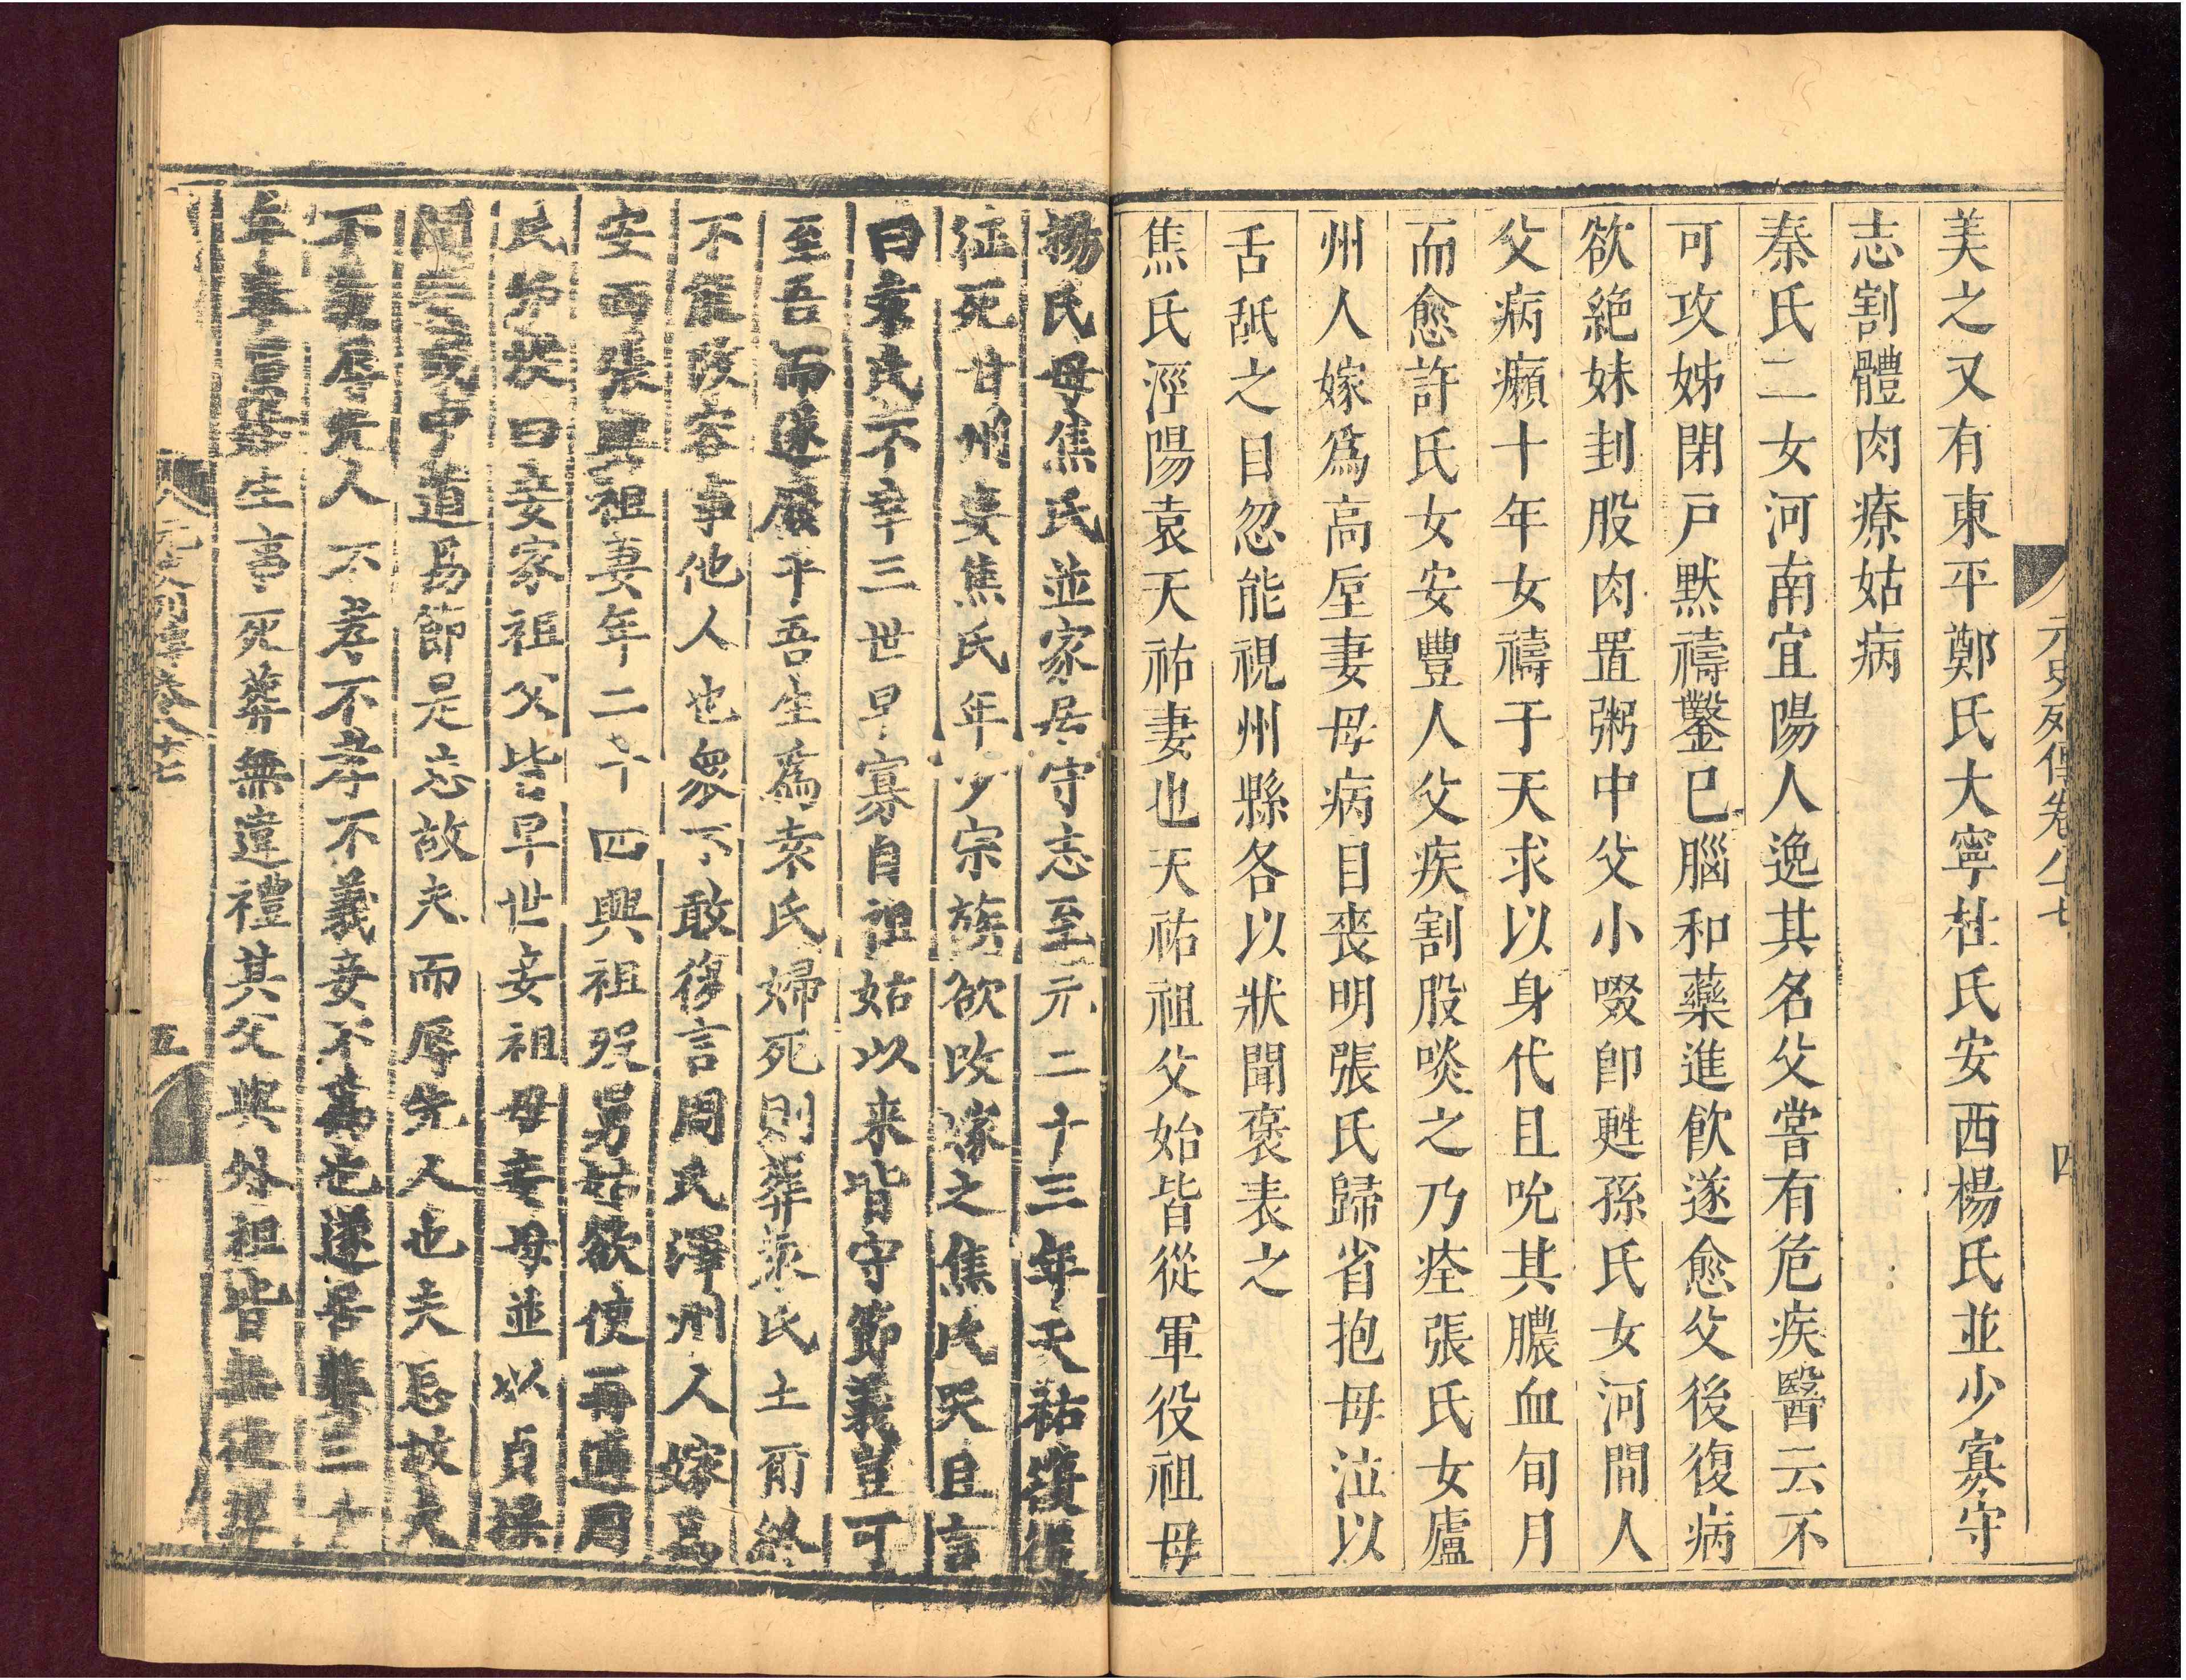 元史列傳卷八十七
四
美之又有東平鄭氏大寧杜氏安西楊氏並少寡守
志割體肉療姑病
秦氏二女河南宜陽人逸其名父嘗有危疾醫云不
可攻姊閉戶默禱鑿巳腦和藥進飲遂愈父後復病
欲絶妹刲股肉置粥中父小啜卽甦孫氏女河間人
父病癩十年女禱于天求以身代且吮其膿血旬月
而愈許氏女安豐人父疾割股啖之乃痊張氏女廬
州人嫁爲高垕妻母病目喪明張氏歸省抱母泣以
舌舐之目忽能視州縣各以狀聞褒表之
焦氏涇陽袁天祐妻也天祐祖父始皆從軍役祖母
楊氏母焦氏並家居守志至元二十三年天祐復從
征死甘州妻焦氏年少宗族欲改嫁之焦氏哭且言
曰袁氏不幸三世早寡自祖姑以来皆守節義豈可
至吾而遂廢乎吾生爲袁氏婦死則葬袁氏土爾終
不能改容事他人也衆不敢復言周氏澤州人嫁爲
安西張興祖妻年二十四興祖歿舅姑欲使再適周
氏弗從曰妾家祖父皆早世妾祖母妾母並以貞操
聞妾或中道易節是忘故夫而辱先人也夫忘故夫
不義辱先人不孝不孝不義妾不爲也遂居嫠三十
年奉舅姑生事死葬無違禮其父與外祖皆無後葬
元史列傳卷八十七
五